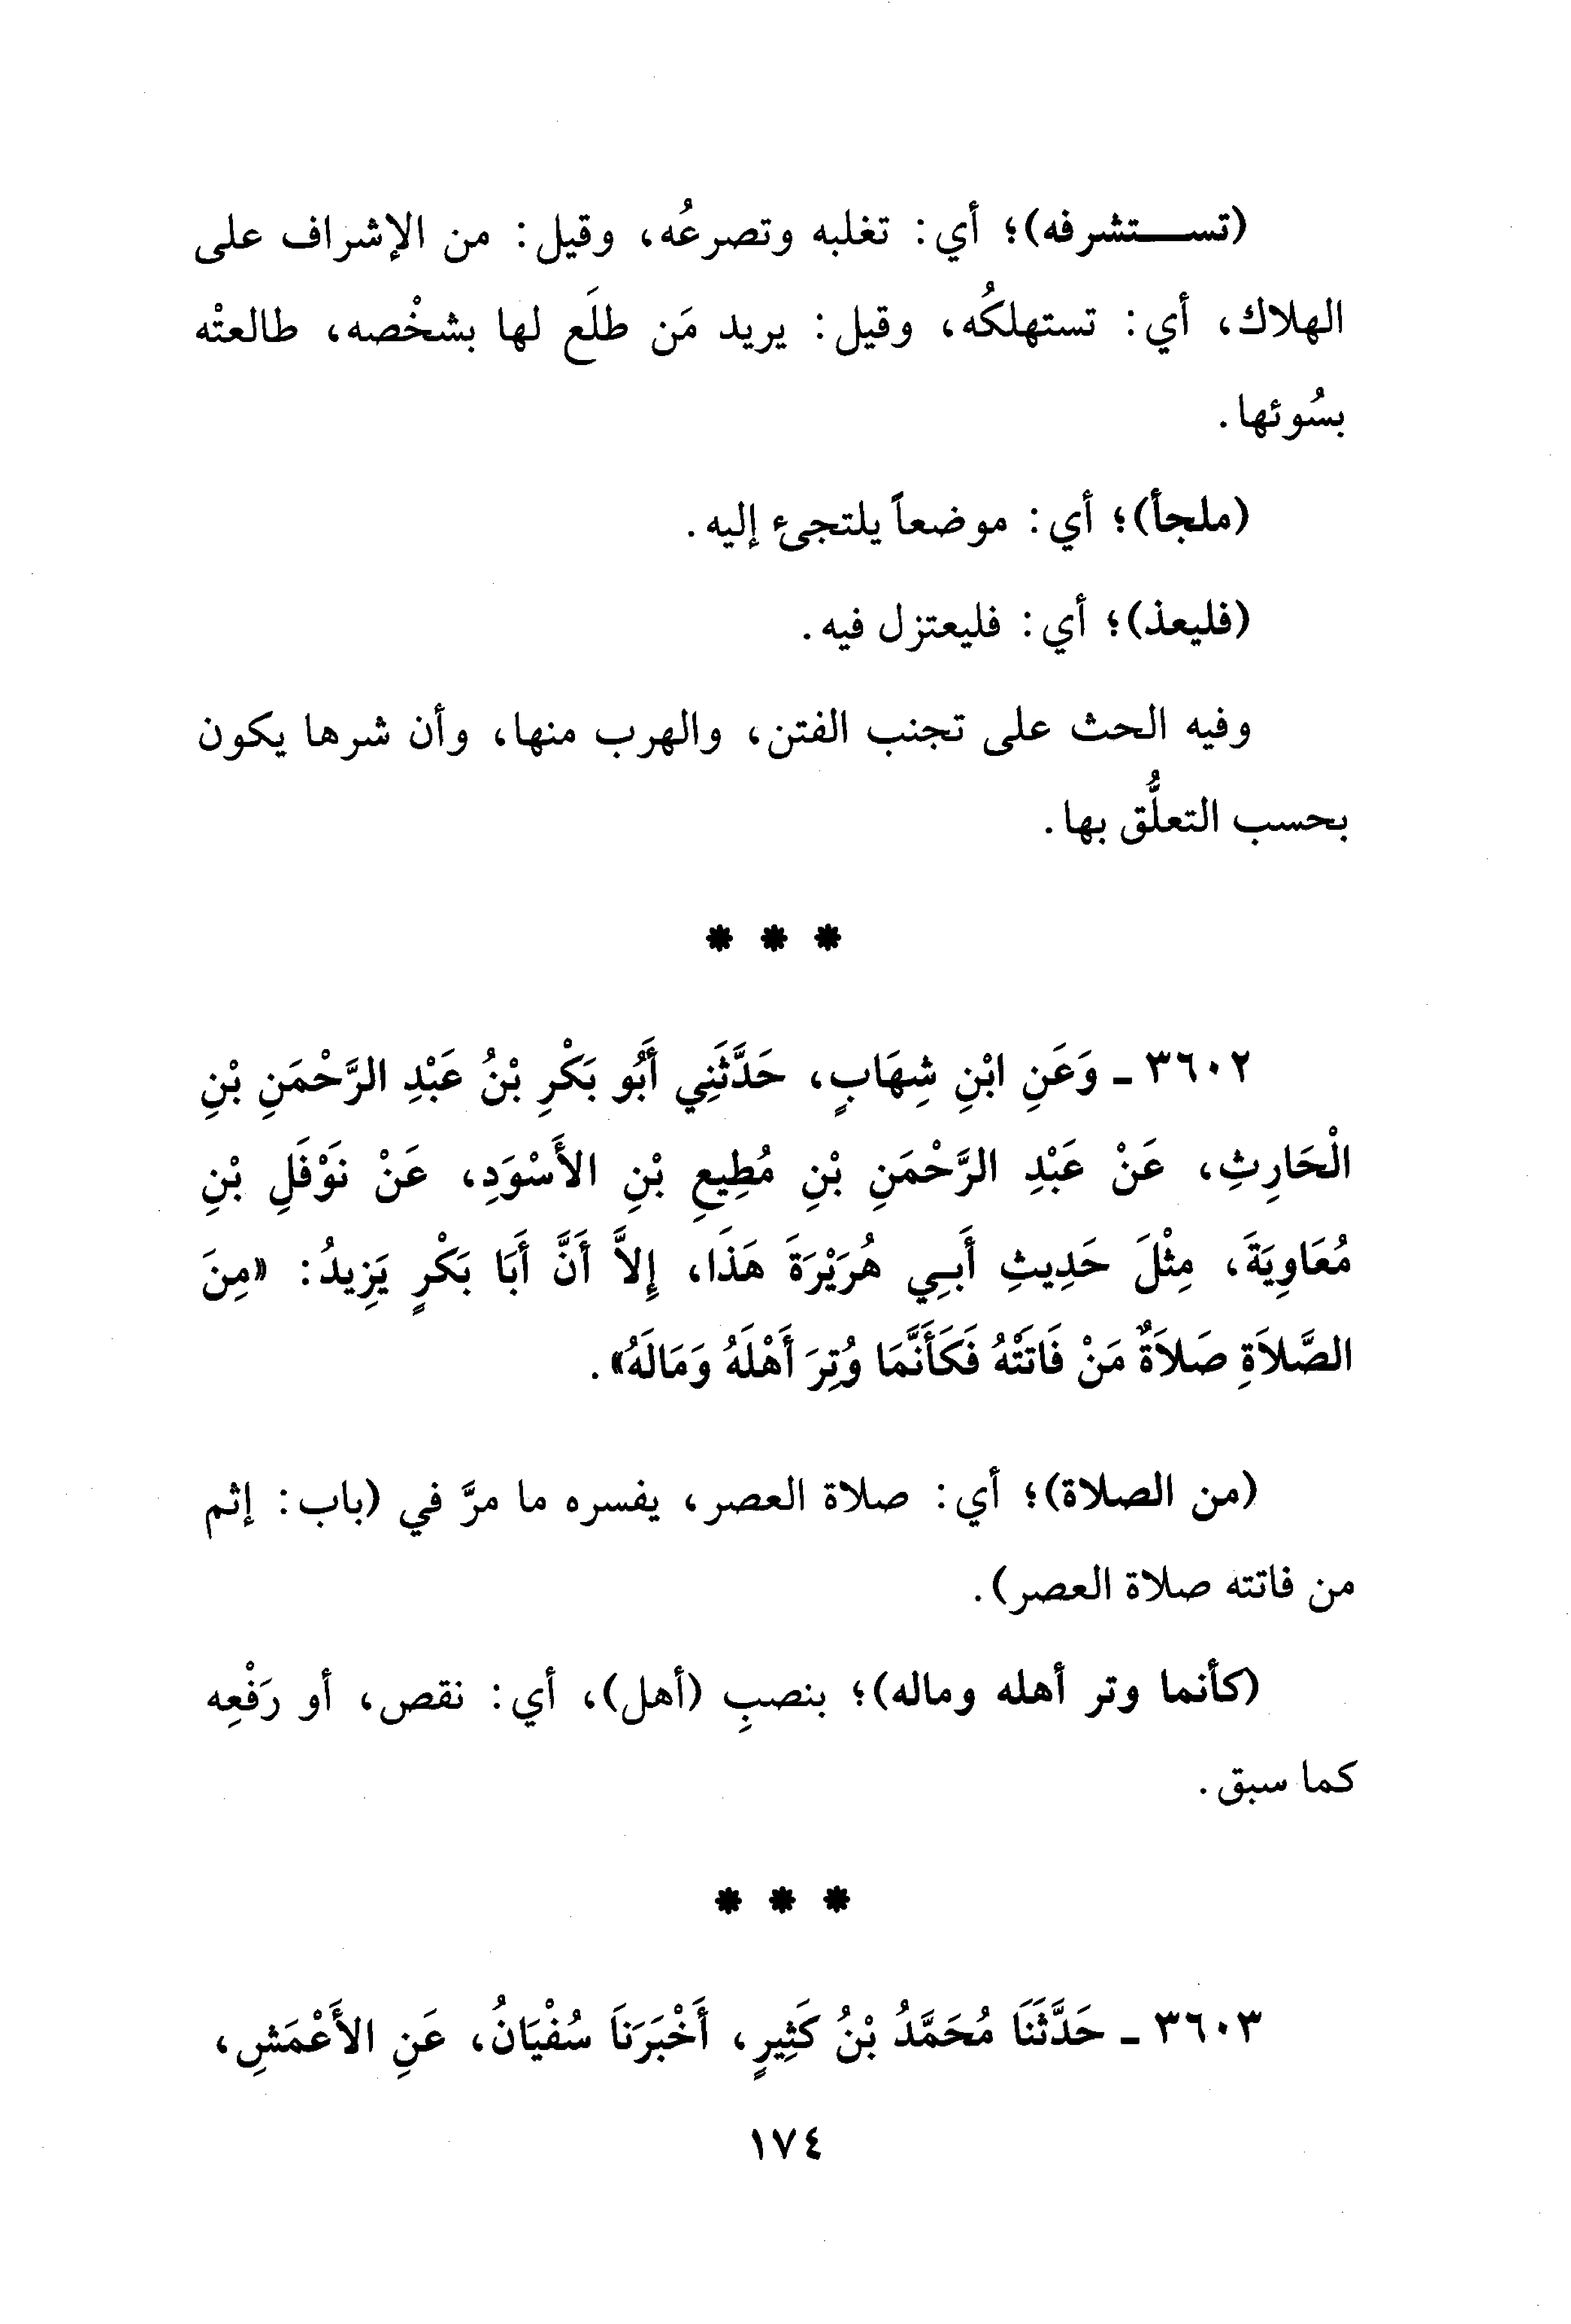 (تستشرفه)؛ أي: تغلبه وتصرعُه، وقيل: من الإشراف على
الهلاك، أي: تستهلكُه، وقيل: يريد مَن طلَع لها بشخْصه، طالعتْه
بسُوئها.
(ملجأ)؛ أي: موضعاً يلتجئ إليه.
(فليعذ)؛ أي: فليعتزل فيه.
وفيه الحث على تجنب الفتن، والهرب منها، وأن شرها يكون
بحسب التعلُّق بها.
* * *
٣٦٠٢ ـ وَعَنِ ابْنِ شِهَابٍ، حَدَّثَنِي أَبُو بَكْرِ بْنُ عَبْدِ الرَّحْمَنِ بْنِ
الْحَارِثِ، عَنْ عَبْدِ الرَّحْمَنِ بْنِ مُطِيعِ بْنِ الأَسْوَدِ، عَنْ نَوْفَلِ بْنِ
مُعَاوِيَةَ، مِثْلَ حَدِيثِ أَبِي هُرَيْرَةَ هَذَا، إِلاَّ أَنَّ أَبَا بَكْرٍ يَزِيدُ: «مِنَ
الصَّلاَةِ صَلاَةٌ مَنْ فَاتَتْهُ فَكَأَنَّمَا وُتِرَ أَهْلَهُ وَمَالَهُ».
(من الصلاة)؛ أي: صلاة العصر، يفسره ما مرَّ في (باب: إثم
من فاتته صلاة العصر).
(كأنما وتر أهله وماله)؛ بنصبِ (أهل)، أي: نقص، أو رَفْعِه
كما سبق.
* * *
٣٦٠٣ ـ حَدَّثَنَا مُحَمَّدُ بْنُ كَثِيرٍ، أَخْبَرَنَا سُفْيَانُ، عَنِ الأَعْمَشِ،
١٧٤